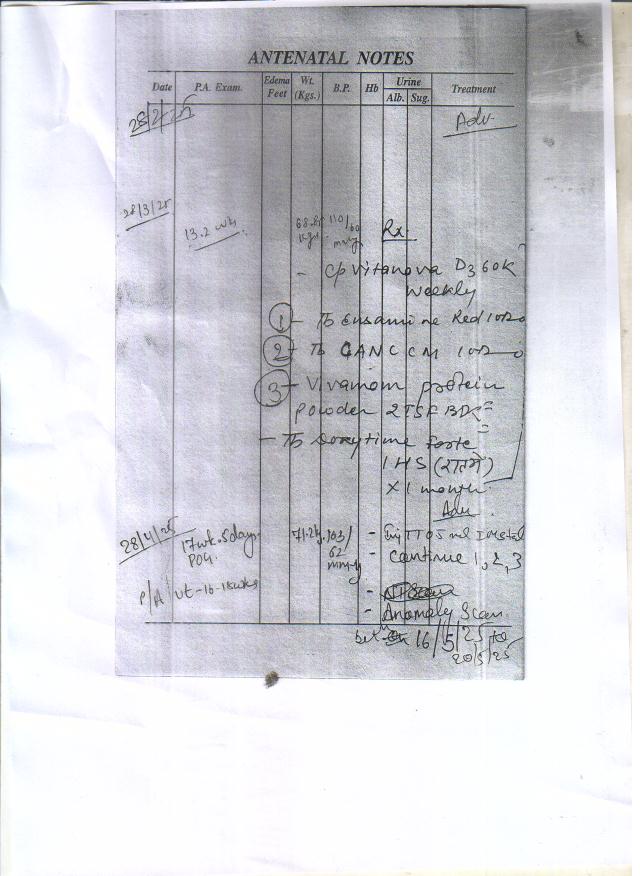 ANTENATAL NOTES
Date P.A. Exam. Edema Feet Wt. (Kgs.) B.P. Hb Urine Alb. Sug. Treatment
28/2/25 Adv.
28/3/25
13.2 wks 110/60 mmHg Rx.
- Cp Vitanova D3 60K
Weekly
1 - Tb Ensamine Red 1OD
2 - Tb 1OD
3 - Vivamom protein
Powder 2TSF BD
- Tb forte
1 HS (रात में)
X 1 month.
Adv
28/4/25 17wk.5days POG. 71.2kg. 103/62 mmHg - Inj TT 0.5 ml
- Continue 1, 2, 3
P/A ut-16-18wks
- Anomaly Scan.
bet 16/5/25 to
20/5/25